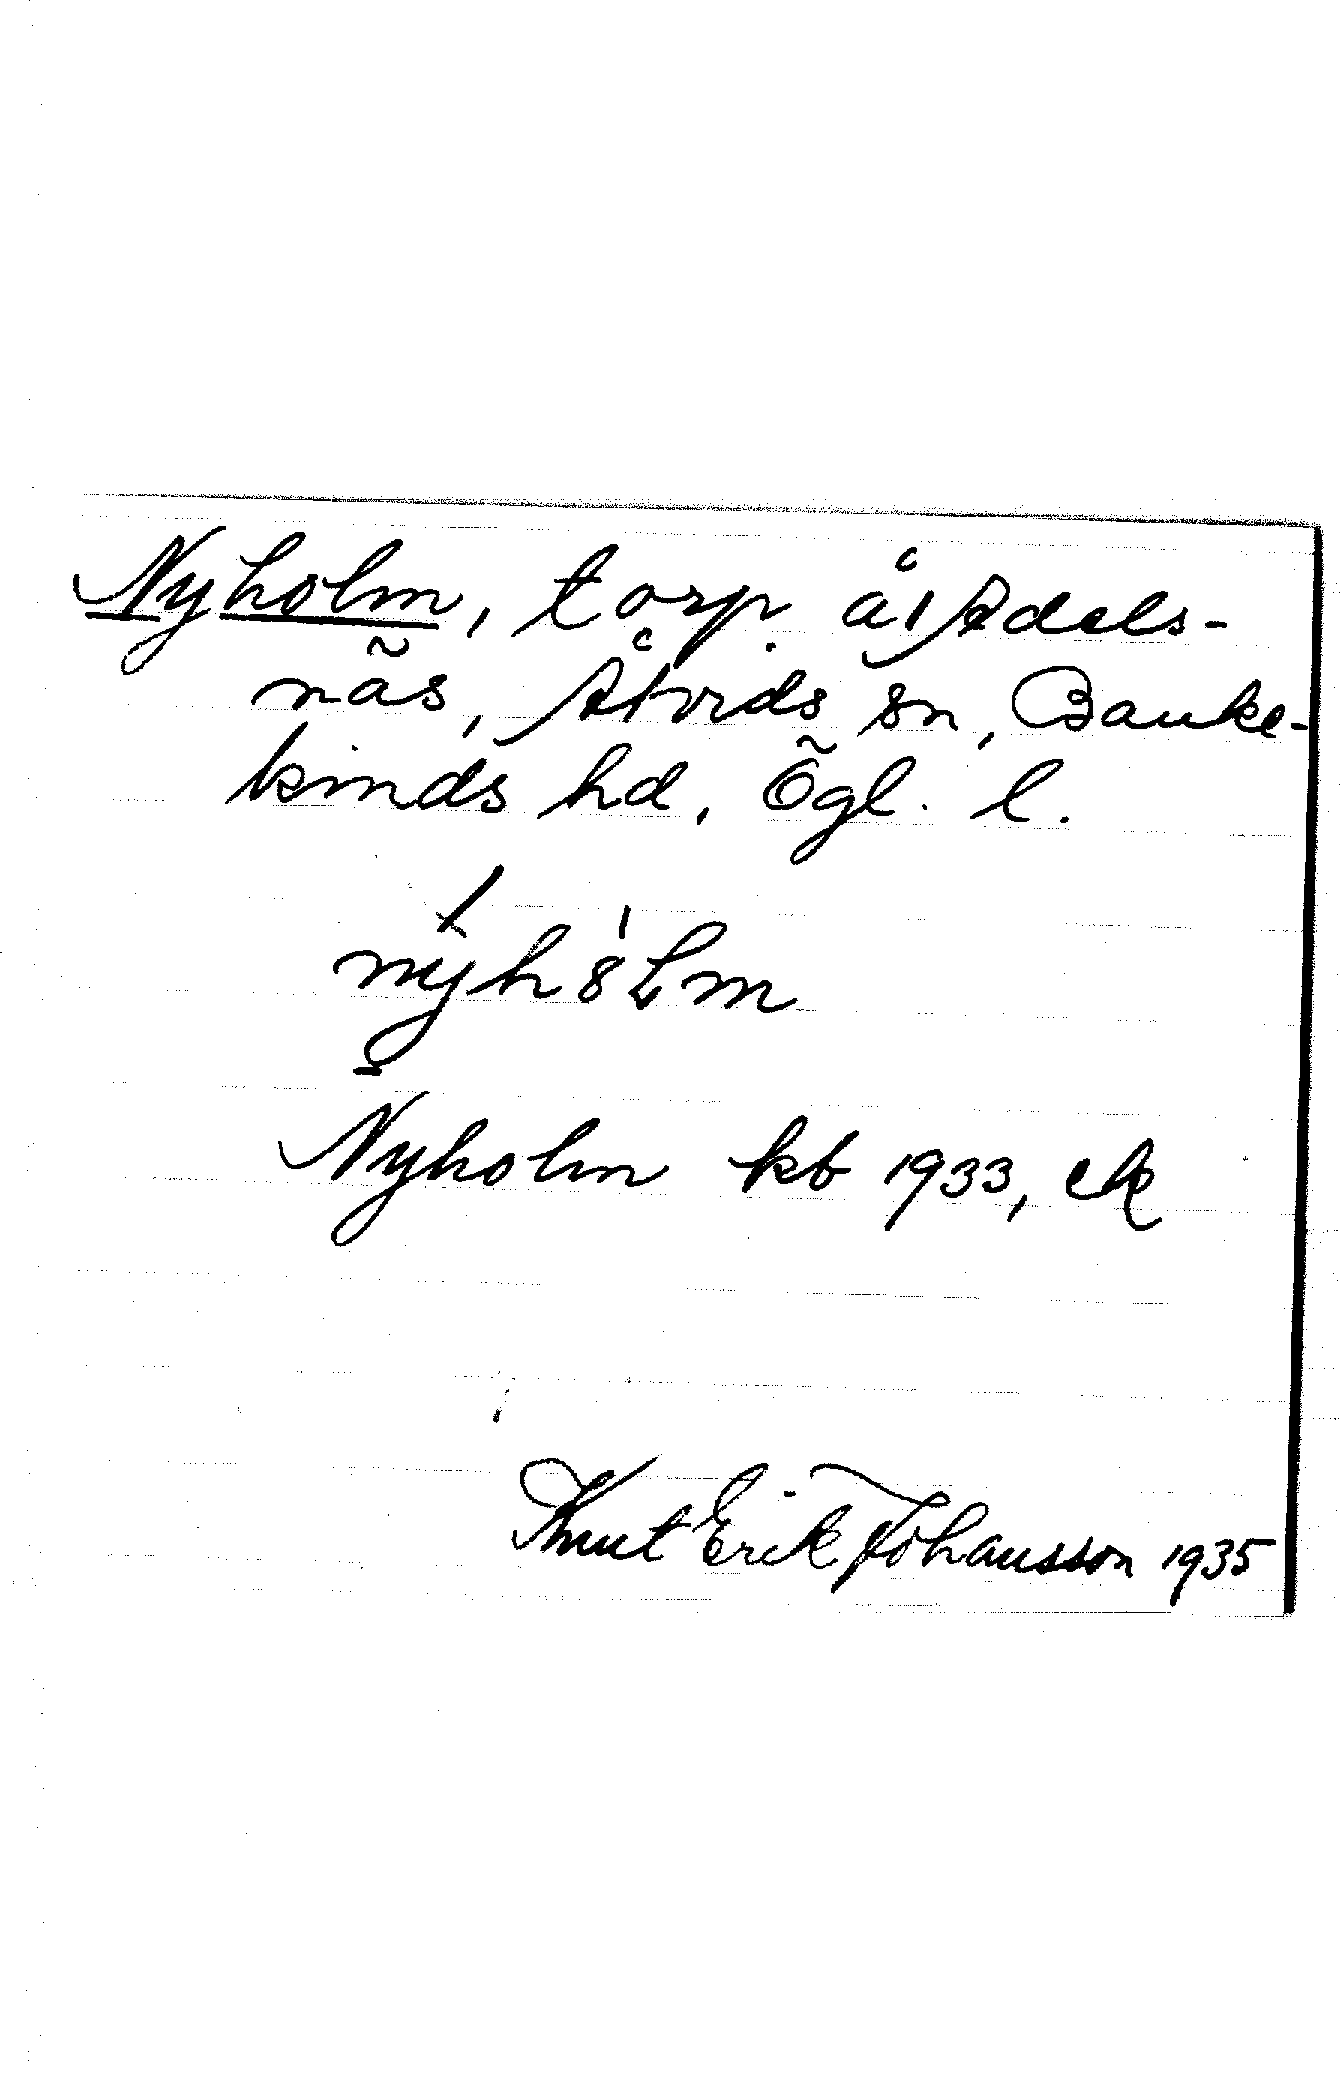 Nyholm, torp å Adels-
näs, Åtvids sn, Banke-
kinds hd, Ögl. l.
nýh8̍Lm
Nyholm kb 1933, ek
Knut Erik Johansson 1935